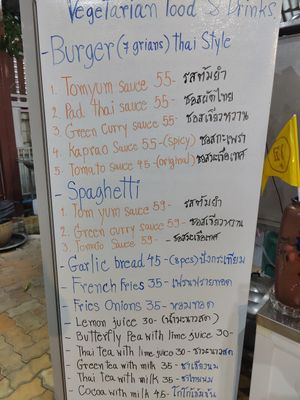 Vegetarian food & Drinks
-Burger (7 grians) Thai Style
1. Tomyum sauce 55- รสต้มยำ
2. Pad Thai sauce 55- ซอสผัดไทย
3. Green curry sauce 55- ซอสเขียวหวาน
4. Kaprao sauce 55-(spicy) ซอสกะเพรา
5. Tomato sauce 45-(original) ซอสมะเขือเทศ
-Spaghetti
1. Tom yum sauce 59- รสต้มยำ
2. Green curry sauce 59- ซอสเขียวหวาน
3. Tomato Sauce 59- ซอสมะเขือเทศ
- Garlic bread 45-(3pcs) ปังกระเทียม
- French Fries 35- เฟรนฟรายทอด
- Fries Onions 35- หอมทอด
- Lemon juice 30-(น้ำมะนาวสด)
- Butterfly Pea with lime juice 30-
- Thai tea with lime juice 30- ชามะนาวสด
- Green tea with milk 35- ชาเขียวนม
- Thai tea with milk 35- ชาไทยนม
- Cocoa with milk 45- โกโก้เข้มข้น